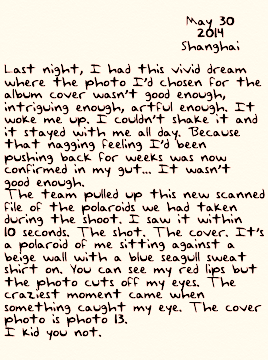 May 30
2014
Shanghai
Last night, I had this vivid dream
where the photo I'd chosen for the
album cover wasn't good enough,
intriguing enough, artful enough. It
woke me up. I couldn't shake it and
it stayed with me all day. Because
that nagging feeling I'd been
pushing back for weeks was now
confirmed in my gut... It wasn't
good enough.
The team pulled up this new scanned
file of the polaroids we had taken
during the shoot. I saw it within
10 seconds. The shot. The cover. It's
a polaroid of me sitting against a
beige wall with a blue seagull sweat
shirt on. You can see my red lips but
the photo cuts off my eyes. The
craziest moment came when
something caught my eye. The cover
photo is photo 13.
I kid you not.